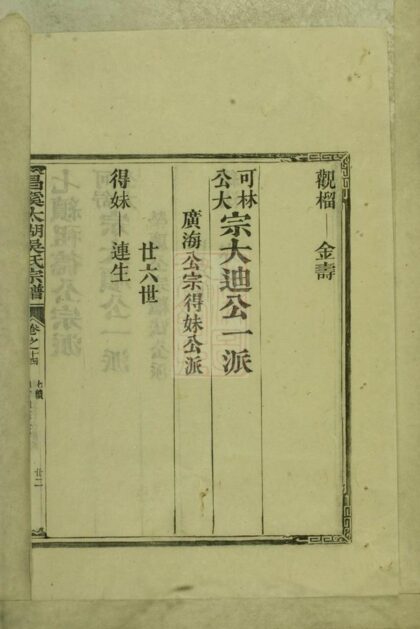 觀榴 金壽
可林公大宗大迪公一派
廣海公宗得妹公派
廿六世
得妹 連生
昌溪太湖吳氏宗譜 卷之十四 七續 廿二